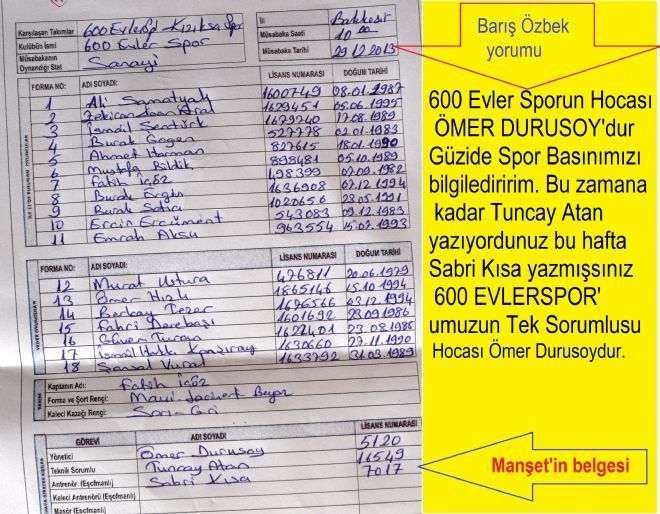 Karşılaşan Takımlar 600 EvlerSp - Kızıksa Spor
Kulübün İsmi 600 Evler Spor
Müsabakanın
Oynandığı Stat Sanayi
İli Balıkesir
Müsabaka Saati 10 00
Müsabaka Tarihi 29.12.2013
FORMA NO: ADI SOYADI: LİSANS NUMARASI: DOĞUM TARİHİ
1 Ali Samatyalı 1600749 08.01.1987
2 1629451 05.06.1995
3 İsmail Sentürk 1679240 17.08.1989
4 Burak Gögen 527778 02.01.1983
5 Ahmet Harman 827615 18.01.1990
6 Mustafa Bildik 898481 05.10.1989
7 Fatih İçöz 698399 07.09.1982
8 Burak Ergin 1636908 07.12.1994
9 Burak 1020656 23.05.1991
10 Ercin Ercüment 543083 09.12.1983
11 Emrah Aksu 963554 15.07.1993
FORMA NO: ADI SOYADI: LİSANS NUMARASI: DOĞUM TARİHİ
12 Murat Ustura 476811 20.06.1979
13 Ömer Hızlı 1865146 15.10.1994
14 Berkay Tezer 1676566 03.12.1994
15 Fahri Derebaşı 1601692 23.09.1986
16 Güven Turan 1627401 23.08.1985
17 İsmail Hakkı 1630660 27.11.1990
18 Şansal Vural 1633792 31.03.1989
Kaptanın Adı: Fatih İçöz
Forma ve Şort Rengi: Mavi-Lacivert Beyaz
Kaleci Kazağı Rengi: Sarı-Gri
GÖREVİ ADI SOYADI LİSANS NUMARASI
Yönetici Ömer Durusoy 5120
Teknik Sorumlu Tuncay Atan 16549
Antrenör (Eşofmanlı) Sabri Kısa 7017
Kaleci Antrenörü (Eşofmanlı)
Masör (Eşofmanlı)
Barış Özbek
yorumu
600 Evler Sporun Hocası
ÖMER DURUSOY'dur
Güzide Spor Basınımızı
bilgilediririm. Bu zamana
kadar Tuncay Atan
yazıyordunuz bu hafta
Sabri Kısa yazmışsınız
600 EVLERSPOR'
umuzun Tek Sorumlusu
Hocası Ömer Durusoydur.
Manşet'in belgesi